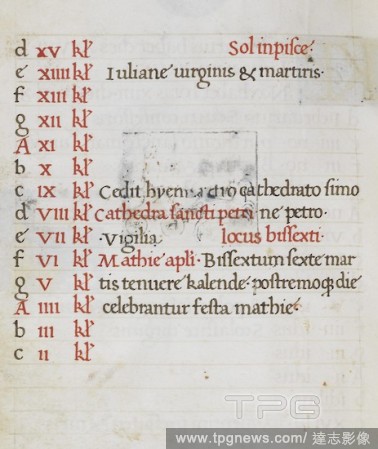 d xv kl Sol in pisce·
e xiiii kl Iuliane uirginis & martiris·
f xiii kl
g xii kl
A xi kl
b x kl
c ix kl Cedit hyems cathedrato simo
d viii kl Cathedra sancti petri ne petro·
e vii kl ·Vigilia locus bissexti·
f vi kl Mathie apli· Bissextum sexte mar
g v kl tis tenuere kalende· postremoq; die
A iiii kl celebrantur festa mathie·
b iii kl
c ii kl
TPG
www.tpgnews.com / 達志影像